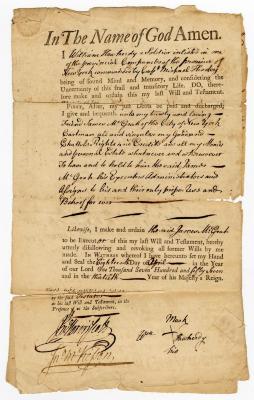 In The Name of God Amen.
I William Hankerdy a Soldier inlisted in one
of the provincial Companies of the province of
New York commanded by Capt. Michael Thodey
being of sound Mind and Memory, and considering the
Uncertainty of this frail and transitory Life, DO, there-
fore make and ordain this my last Will and Testament.
FIRST, After, my just Debts be paid and discharged;
I give and bequeath unto my loving and
Friend James McCash of the City of New York
Cartman all and singular my Goods and
Chattels Rights and Credits also all my Lands
and personal Estate whatsoever and wheresoever
To have and to hold to him the said James
McCash his Executors Administrators and
Assigns to his and their only proper use and
Behoof for ever
Likewise, I make and ordain the said James McCash
to be Executor of this my last Will and Testament, hereby
utterly disallowing and revoking all former Wills by me
made. In Witness whereof I have hereunto set my Hand
and Seal the Eighteenth Day of April in the Year
of our Lord One Thousand Seven Hundred and fifty
and in the Year of his Majesty's Reign.
by the said Testator
as his last Will and Testament, in the
Presence of us the Subscribers.
Mark
Wm
his